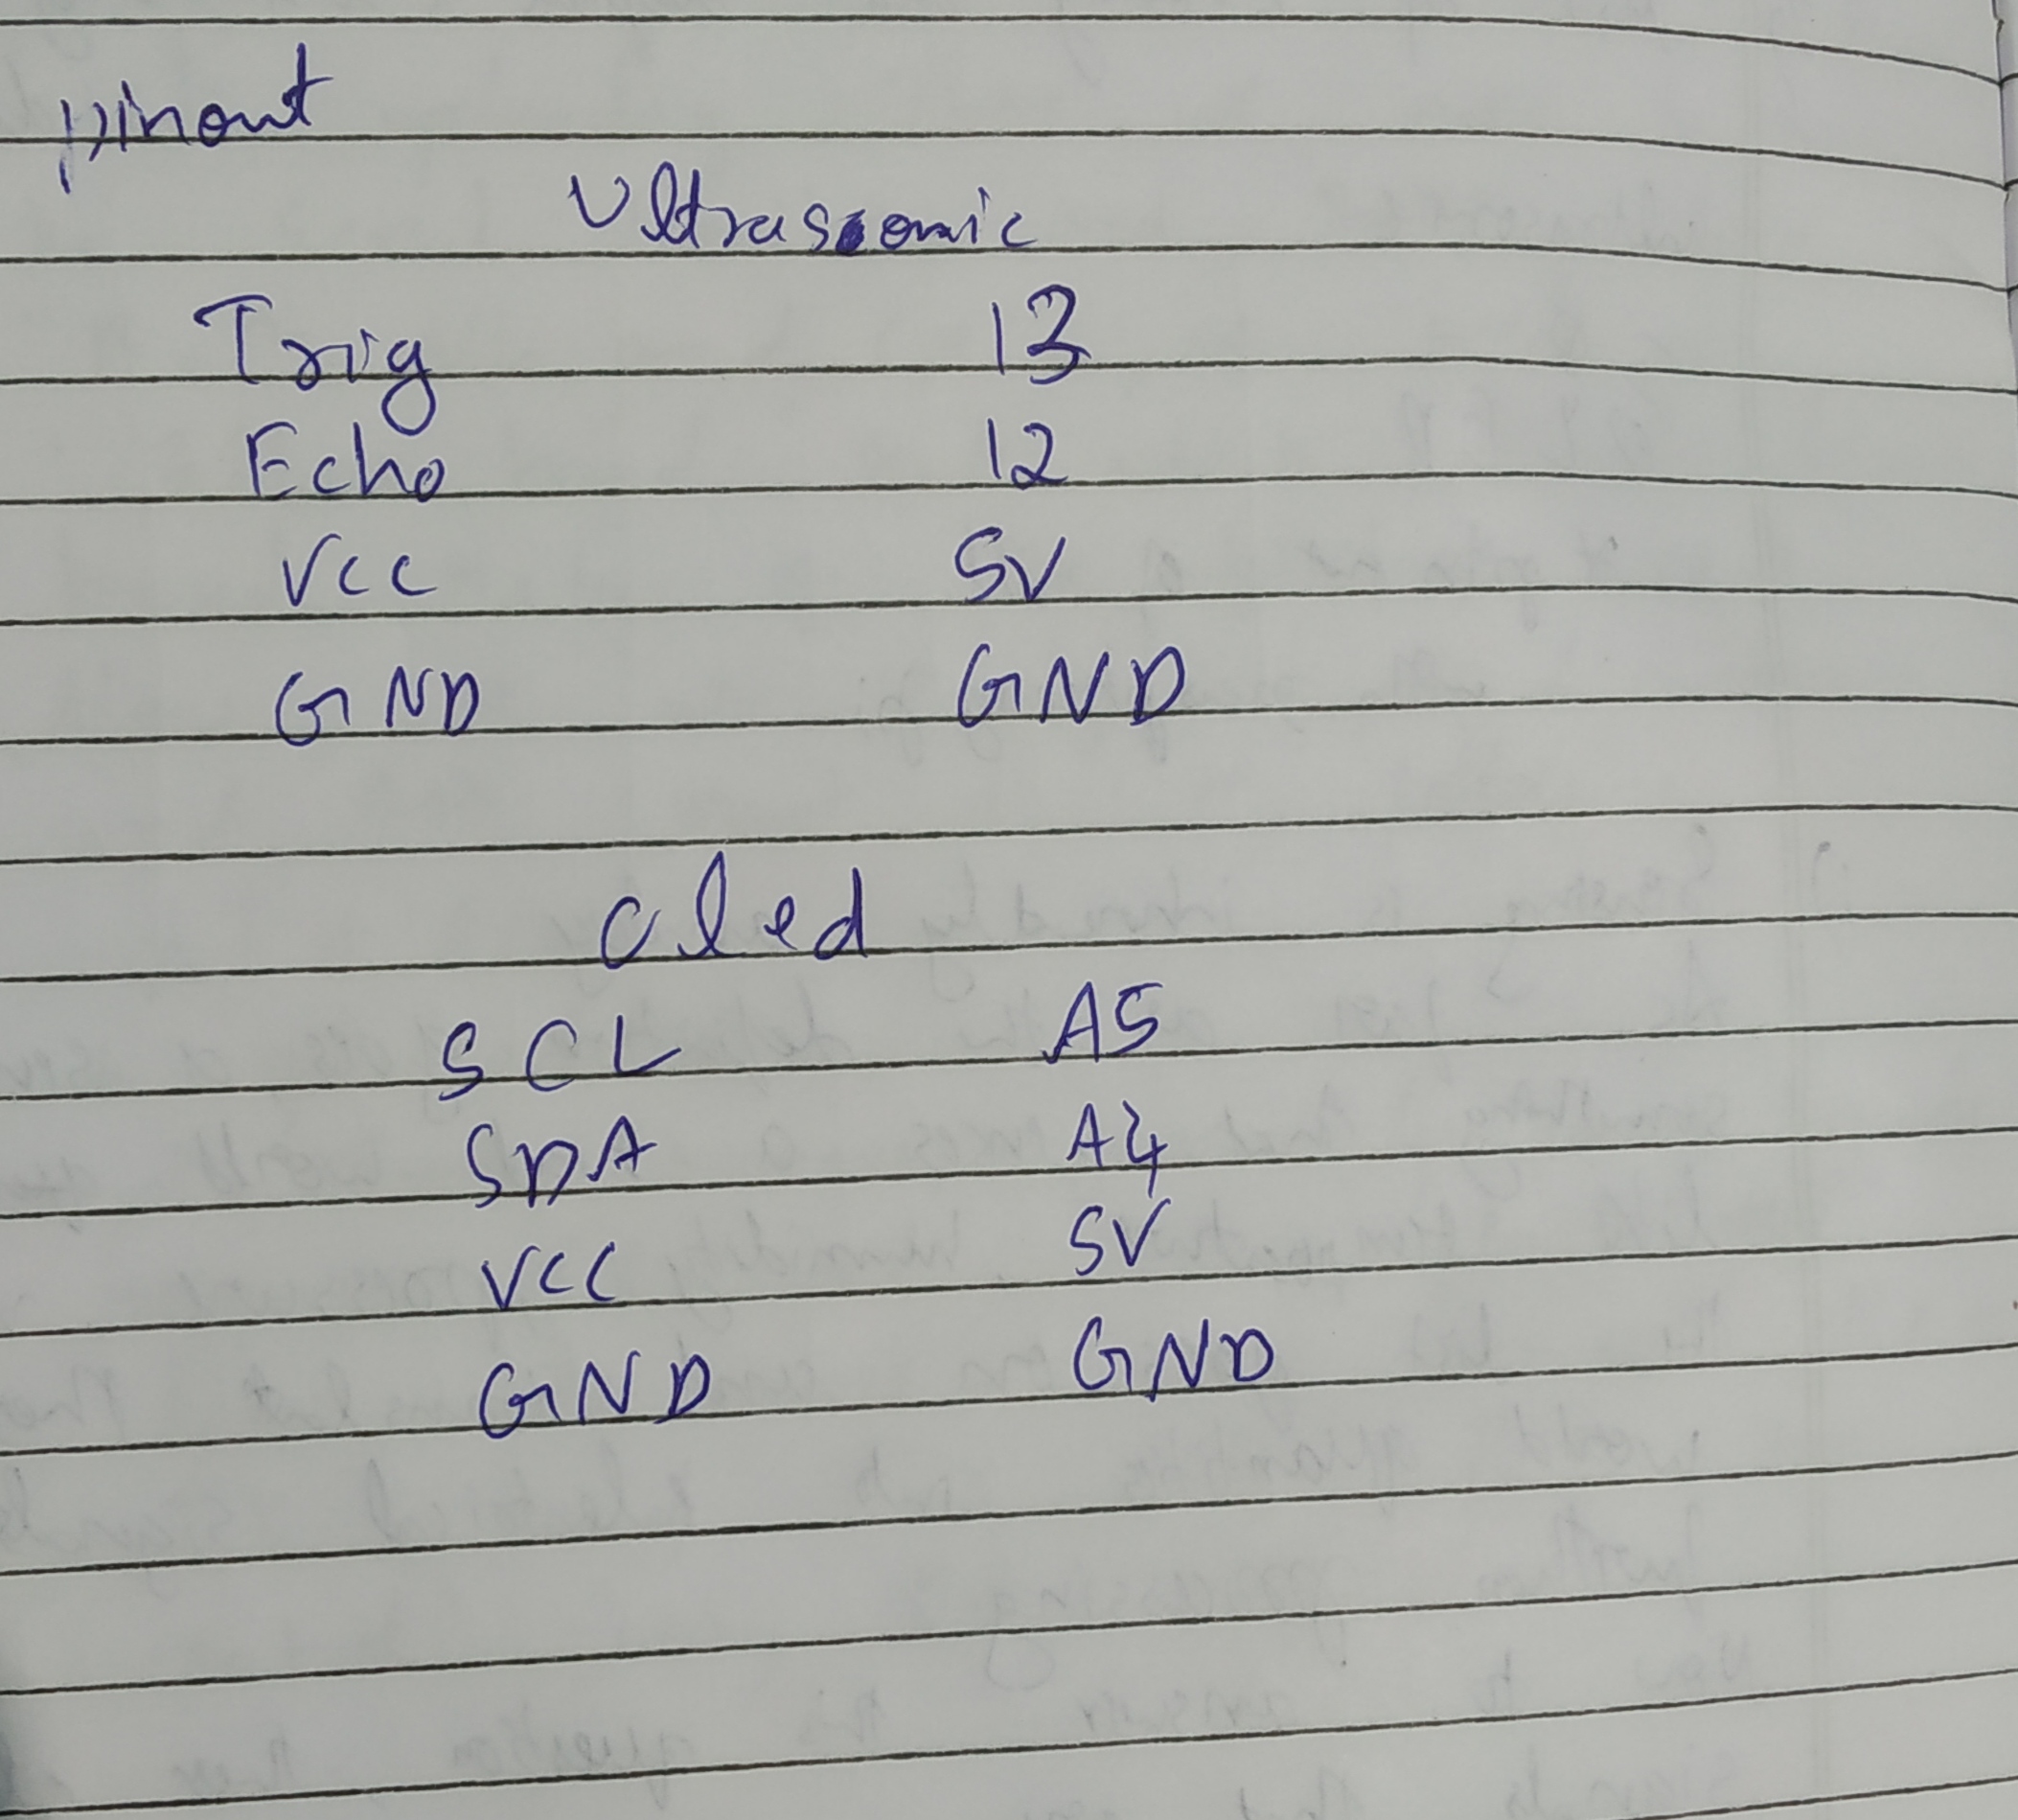 pinout
Ultrasonic
Trig 13
Echo 12
VCC 5V
GND GND
Oled
SCL A5
SDA A4
VCC 5V
GND GND